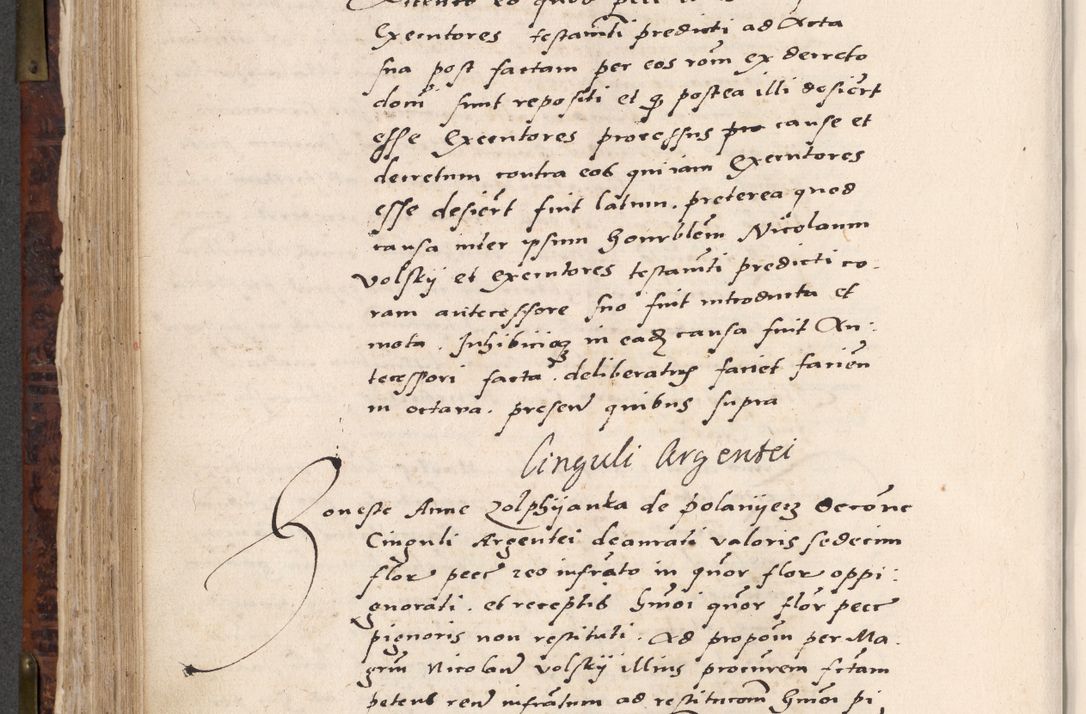 Executores testamti predicti ad Acta
sua post factam per eos rom ex decreto
domi sunt repositi et q postea illi desiert
esse Executores processus pro cause et
decretum contra eos qui iam Executores
esse desiert fuit latum. preterea quod
causa inter ipsum honorblem Nicolaum
Volsky et executores testamti predicti co-
ram antecessore suo fuit introducta et
mota. Inhibicioq in eadz causa fuit An:
tecessori facta. deliberatus faciet facien
in octava. presen quibus supra
Cinguli Argentei
Honeste Anne Zolphijanka de polanijecz decone
Cinguli Argentei deaurati valoris sedecim
flor pecc reo infrato in quor flor oppi:
gnorati. et receptis hmoi quor flor pecc
pignoris non restituti. Ad propom per Ma.
grm Nicolau volsky illius procurem fctam
petens reu infratum ad restitucom hmoi pi